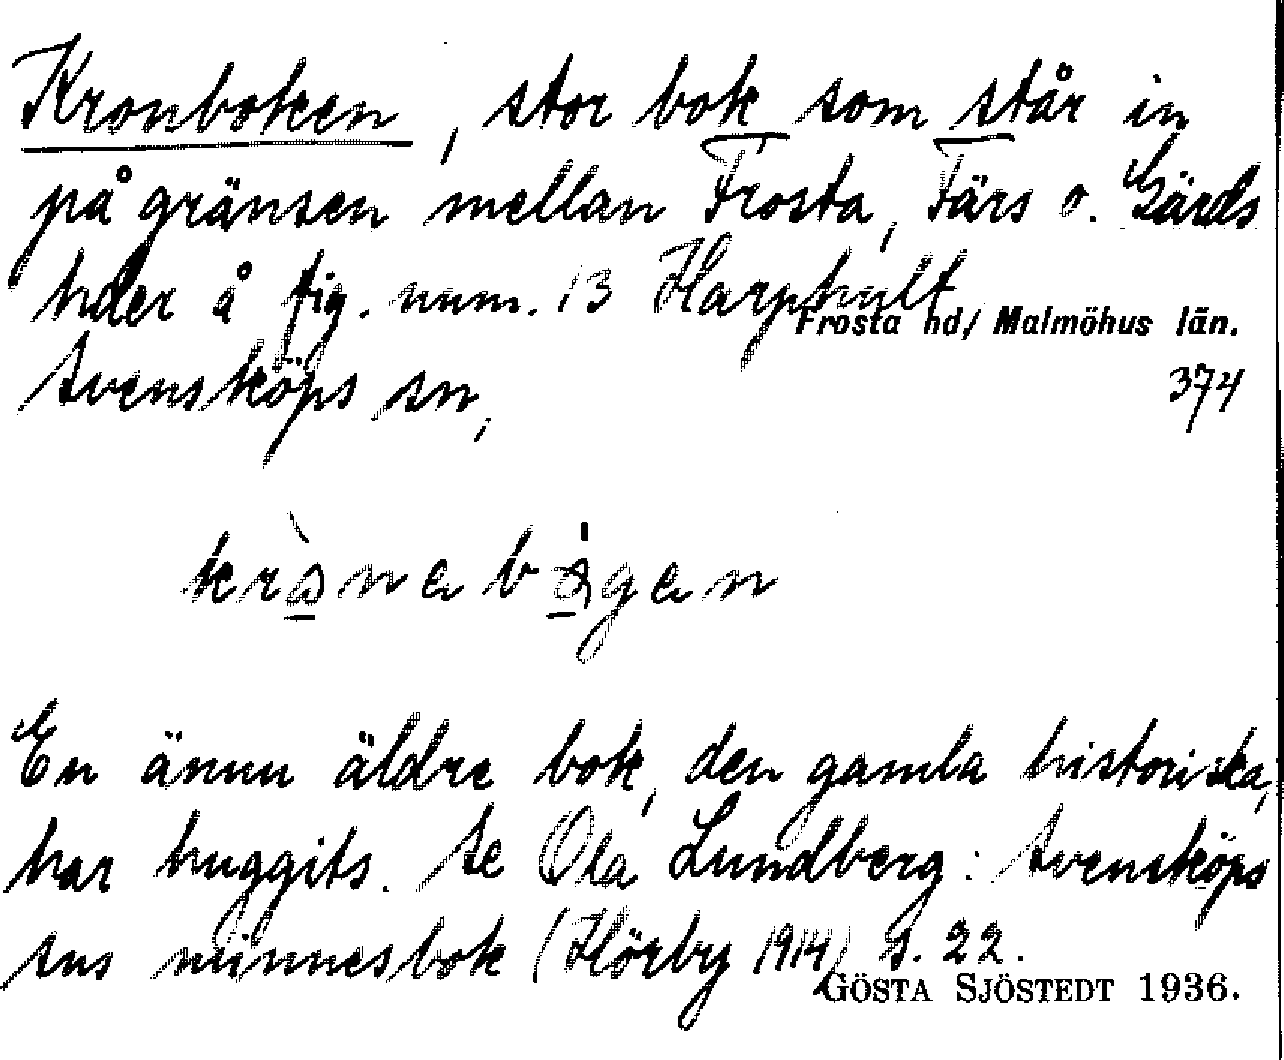 Kronboken, stor bok som står in
på gränsen mellan Frosta, Färs o. Gärds
hder å fig. num. 13 Harphult
Frosta hd/ Malmöhus län.
Svensköps sn,
374
krònebógen
En ännu äldre bok, den gamla historiska,
har huggits. Se Ola Lundberg: Svensköps
sns minnesbok (Hörby 1914) s. 22.
GÖSTA SJÖSTEDT 1936.